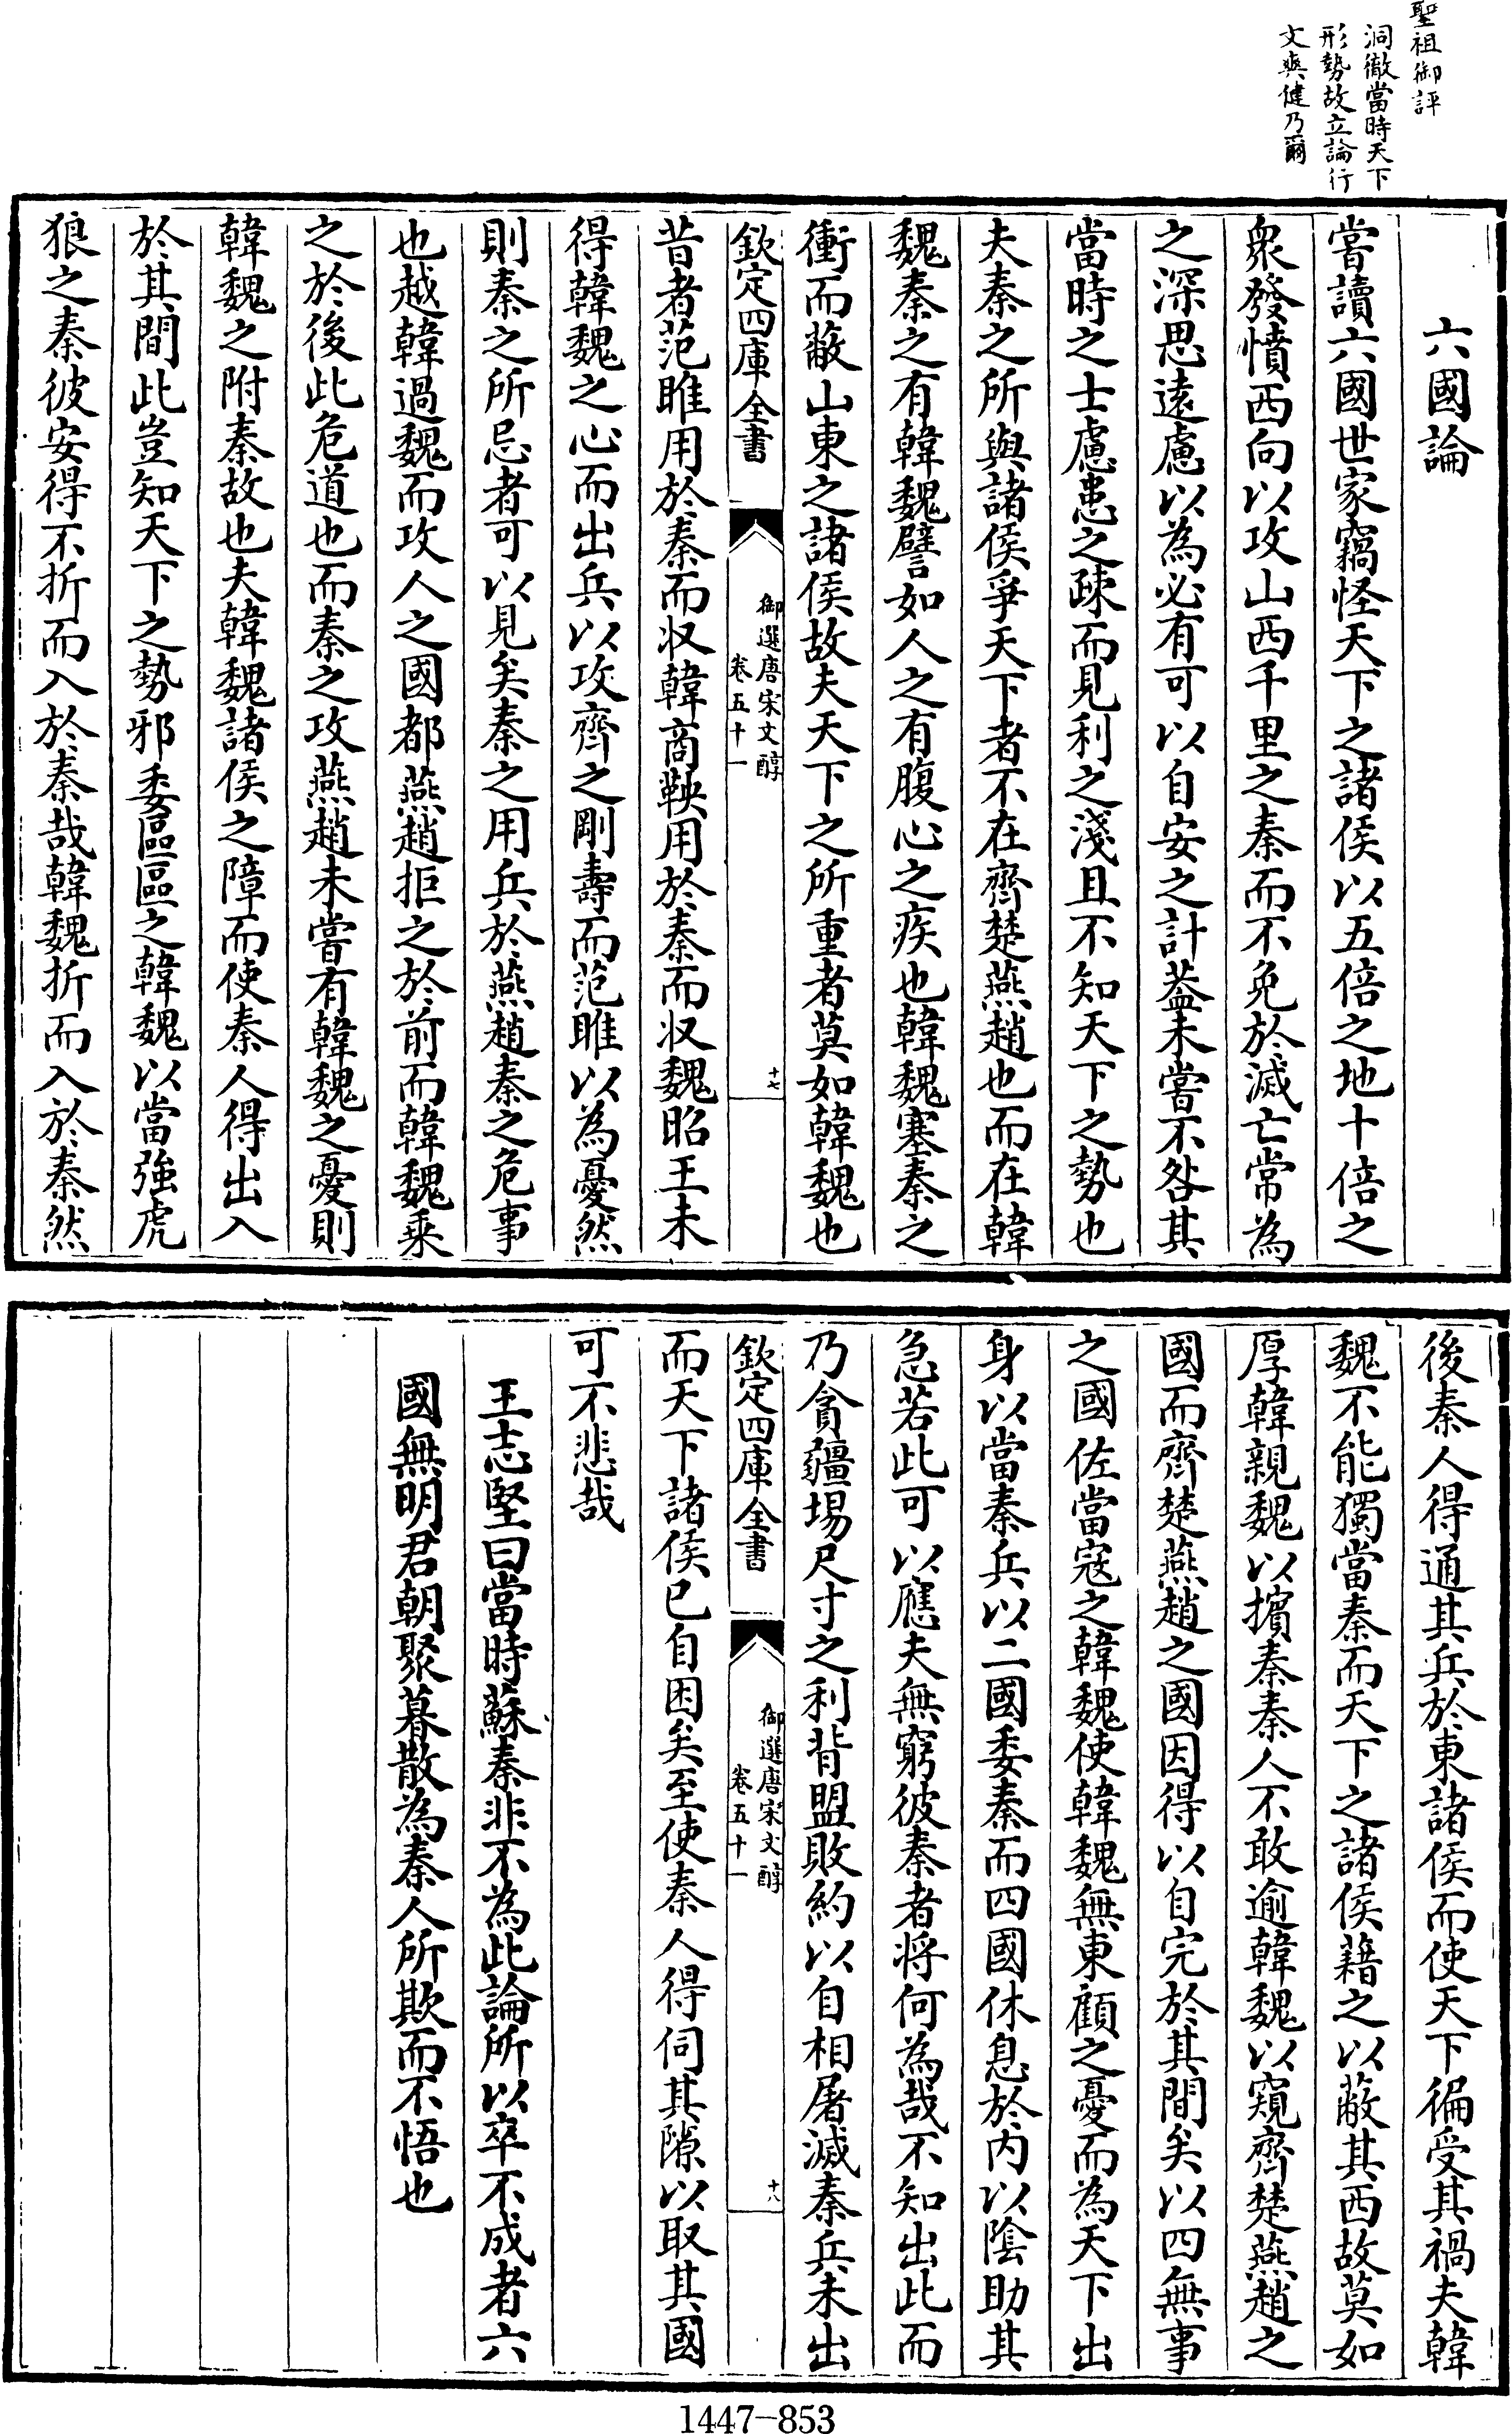 聖祖御評
洞徹當時天下
形勢故立論行
文爽健乃爾
六國論
嘗讀六國世家竊怪天下之諸侯以五倍之地十倍之
衆發憤西向以攻山西千里之秦而不免於滅亡常為
之深思遠慮以為必有可以自安之計葢未嘗不咎其
當時之士慮患之疎而見利之淺且不知天下之勢也
夫秦之所與諸侯爭天下者不在齊楚燕趙也而在韓
魏秦之有韓魏譬如人之有腹心之疾也韓魏塞秦之
衝而蔽山東之諸侯故夫天下之所重者莫如韓魏也
欽定四庫全書
御選唐宋文醇
卷五十一
十七
昔者范雎用於秦而収韓商鞅用於秦而収魏昭王未
得韓魏之心而出兵以攻齊之剛壽而范雎以為憂然
則秦之所忌者可以見矣秦之用兵於燕趙秦之危事
也越韓過魏而攻人之國都燕趙拒之於前而韓魏乘
之於後此危道也而秦之攻燕趙未嘗有韓魏之憂則
韓魏之附秦故也夫韓魏諸侯之障而使秦人得出入
於其間此豈知天下之勢邪委區區之韓魏以當強虎
狼之秦彼安得不折而入於秦哉韓魏折而入於秦然
後秦人得通其兵於東諸侯而使天下徧受其禍夫韓
魏不能獨當秦而天下之諸侯藉之以蔽其西故莫如
厚韓親魏以擯秦秦人不敢逾韓魏以窺齊楚燕趙之
國而齊楚燕趙之國因得以自完於其間矣以四無事
之國佐當寇之韓魏使韓魏無東顧之憂而為天下出
身以當秦兵以二國委秦而四國休息於内以陰助其
急若此可以應夫無窮彼秦者將何為哉不知出此而
乃貪疆埸尺寸之利背盟敗約以自相屠滅秦兵未出
欽定四庫全書
御選唐宋文醇
卷五十一
十八
而天下諸侯已自困矣至使秦人得伺其隙以取其國
可不悲哉
王志堅曰當時蘇秦非不為此論所以卒不成者六
國無明君朝聚暮散為秦人所欺而不悟也
1447-853